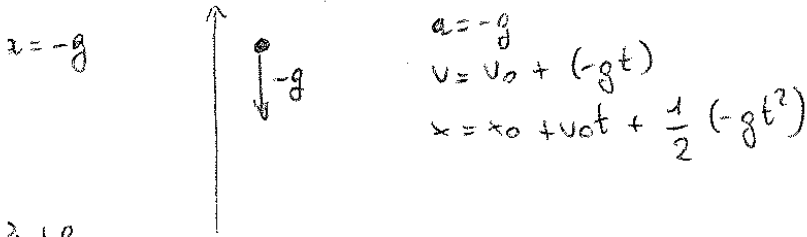 a = -g
-g
a = -g
v = v₀ + (-gt)
x = x₀ + v₀t + 1/2 (-gt²)